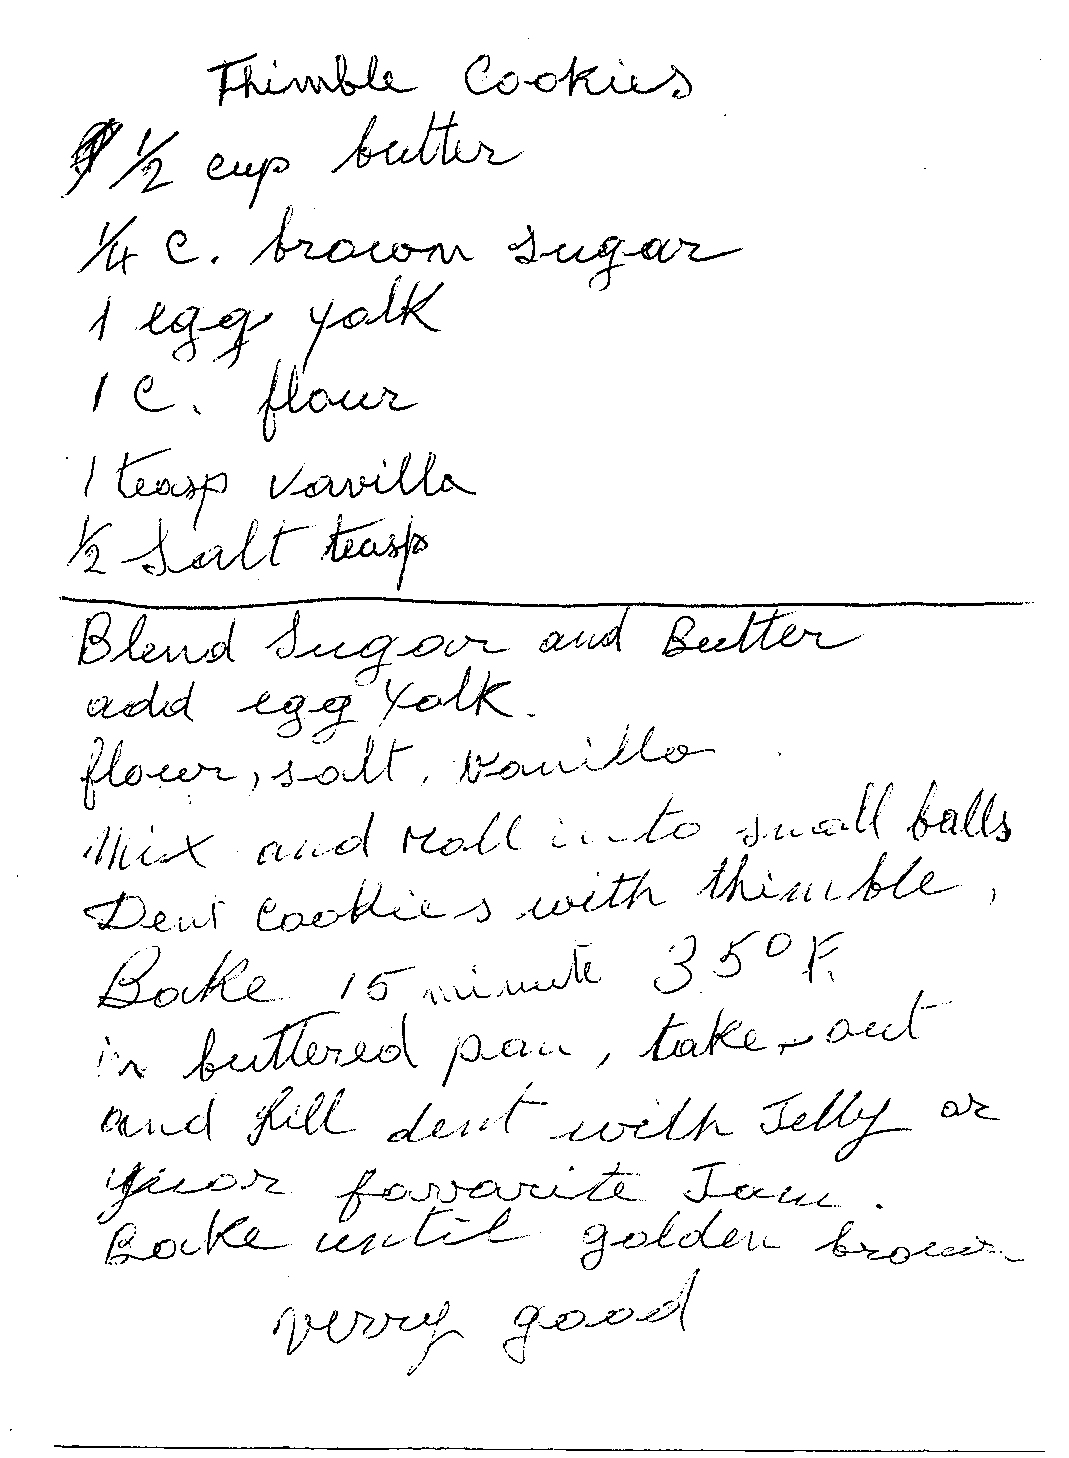 Thimble Cookies
1/2 cup butter
1/4 c. brown sugar
1 egg yolk
1 c. flour
1 teasp vanilla
1/2 Salt teasp
Blend Sugar and Butter
add egg Yolk.
flour, salt, vanilla
Mix and roll into small balls
Dent cookies with thimble,
Bake 15 minute 350 F.
in buttered pan, take out
and fill dent with Jelly or
your favorite Jam.
Bake until golden brown
verry good